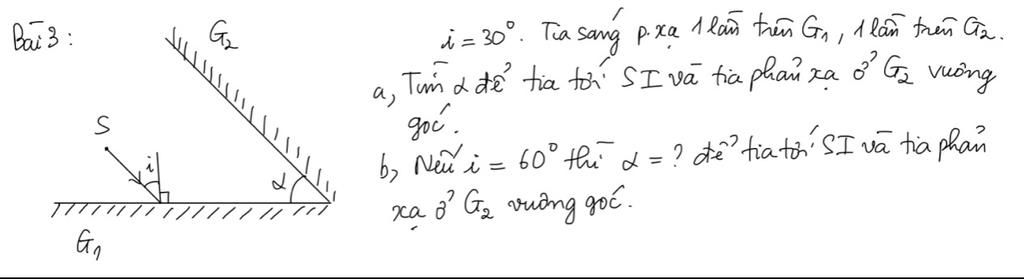 Bài 3:
G₂
S
i
α
G₁
i = 30°. Tia sáng p.xạ 1 lần trên G₁, 1 lần trên G₂.
a, Tìm α để tia tới SI và tia phản xạ ở G₂ vuông
góc.
b, Nếu i = 60° thì α = ? để tia tới SI và tia phản
xạ ở G₂ vuông góc.